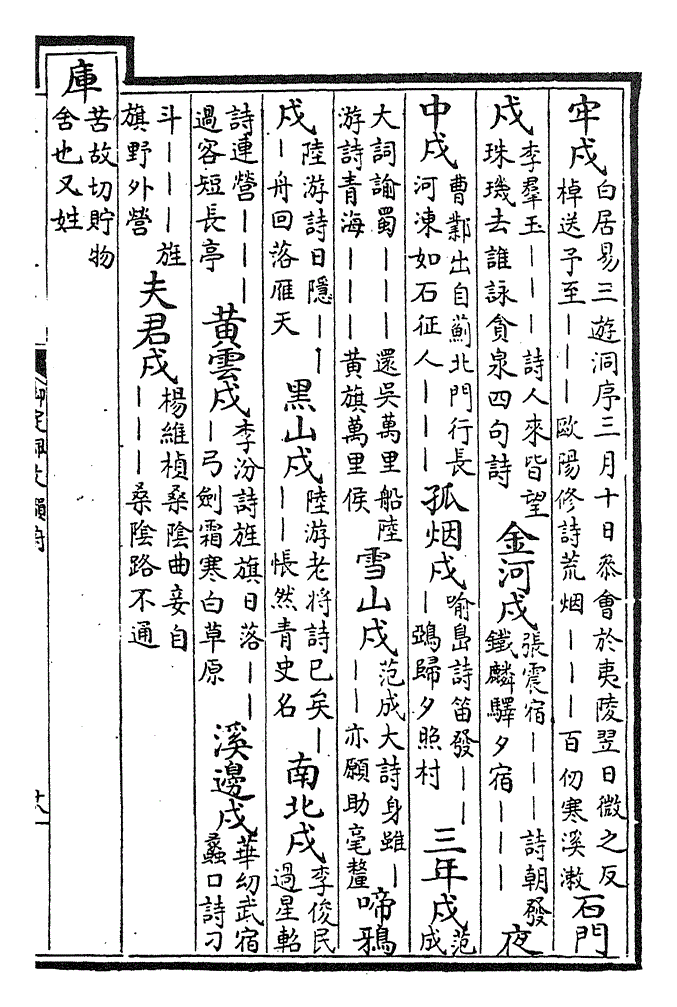 牢戍白居易三遊洞序三月十日叅會於夷陵翌日微之反
棹送予至丨丨丨歐陽修詩荒烟丨丨丨百仞寒溪漱石門
戍李羣玉丨丨丨詩人來皆望
珠璣去誰詠貪泉四句詩
金河戍張震宿丨丨丨詩朝發
鐵麟驛夕宿丨丨丨夜
中戍曹鄴出自薊北門行長
河凍如石征人丨丨丨
孤烟戍喻鳧詩笛發丨丨
丨鵶歸夕照村
三年戍范
成
大詞諭蜀丨丨丨還吳萬里船陸
游詩青海丨丨丨黃旗萬里侯
雪山戍范成大詩身雖丨
丨丨亦願助毫釐啼鴉
戍陸游詩日隱丨丨
丨舟回落雁天
黑山戍陸游老將詩已矣丨
丨丨悵然青史名
南北戍李俊民
過星軺
詩連營丨丨丨
過客短長亭
黃雲戍李汾詩旌旗日落丨丨
丨弓劍霜寒白草原
溪邊戍華幼武宿
蠡口詩刁
斗丨丨丨旌
旗野外營
夫君戍楊維楨桑陰曲妾自
丨丨丨桑陰路不通
庫苦故切貯物
舍也又姓